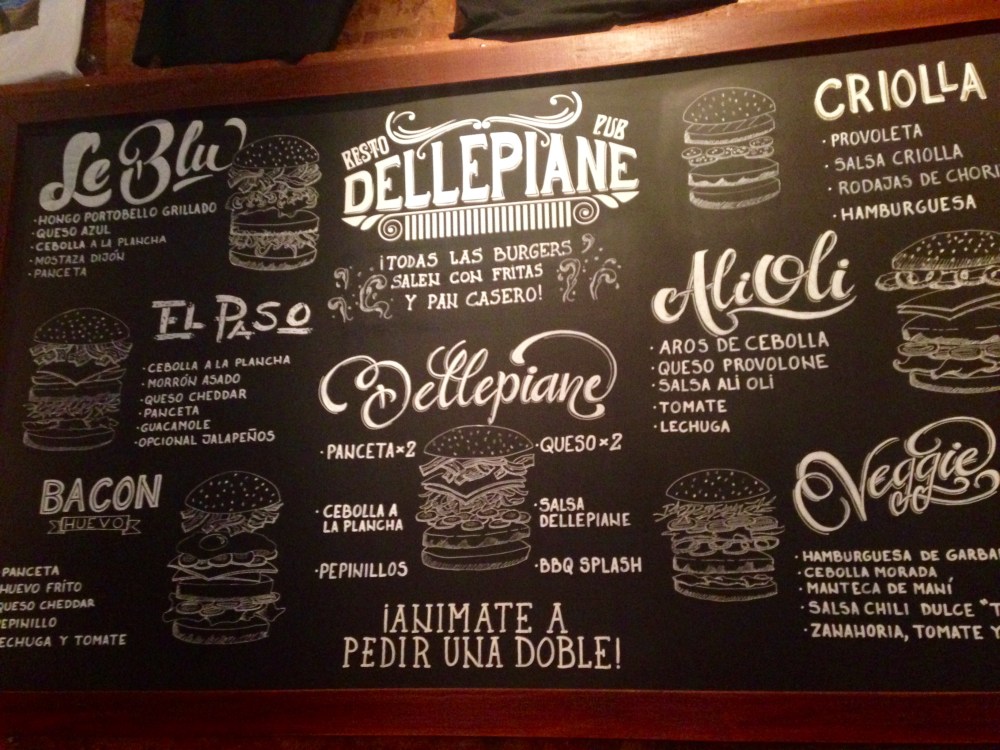 Le Blu
· HONGO PORTOBELLO GRILLADO
· QUESO AZUL
· CEBOLLA A LA PLANCHA
· MOSTAZA DIJÓN
· PANCETA
EL PASO
· CEBOLLA A LA PLANCHA
· MORRÓN ASADO
· QUESO CHEDDAR
· PANCETA
· GUACAMOLE
· OPCIONAL JALAPEÑOS
BACON
HUEVO
PANCETA
HUEVO FRITO
QUESO CHEDDAR
PEPINILLO
ECHUGA Y TOMATE
RESTO PUB
DELLEPIANE
¡TODAS LAS BURGERS
SALEN CON FRITAS
Y PAN CASERO!
Dellepiane
· PANCETA×2
· CEBOLLA A
LA PLANCHA
· PEPINILLOS
· QUESO×2
· SALSA
DELLEPIANE
· BBQ SPLASH
¡ANIMATE A
PEDIR UNA DOBLE!
CRIOLLA
· PROVOLETA
· SALSA CRIOLLA
· RODAJAS DE CHORI
· HAMBURGUESA
AliOli
· AROS DE CEBOLLA
· QUESO PROVOLONE
· SALSA ALI OLI
· TOMATE
· LECHUGA
Veggie
· HAMBURGUESA DE GARBA
· CEBOLLA MORADA
· MANTECA DE MANÍ
· SALSA CHILI DULCE "T
· ZANAHORIA, TOMATE Y